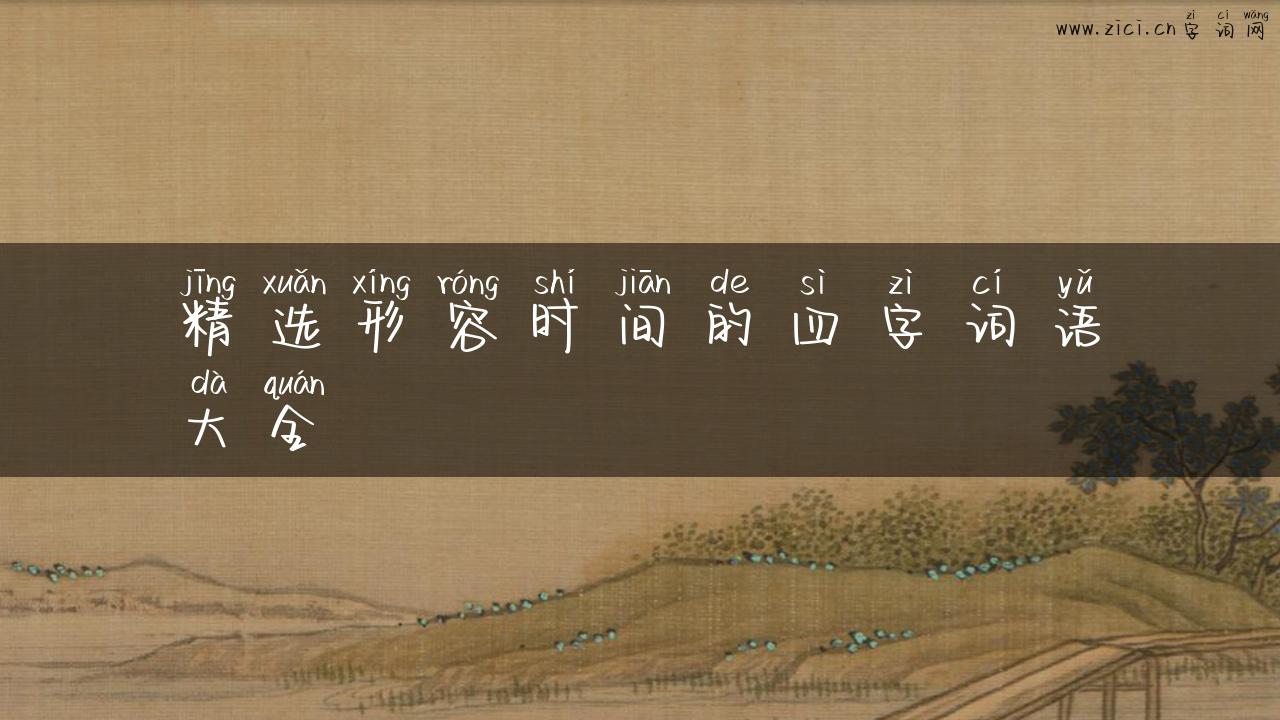 zì cí wǎng
www.zici.cn字词网
jīng xuǎn xíng róng shí jiān de sì zì cí yǔ
精选形容时间的四字词语
dà quán
大全